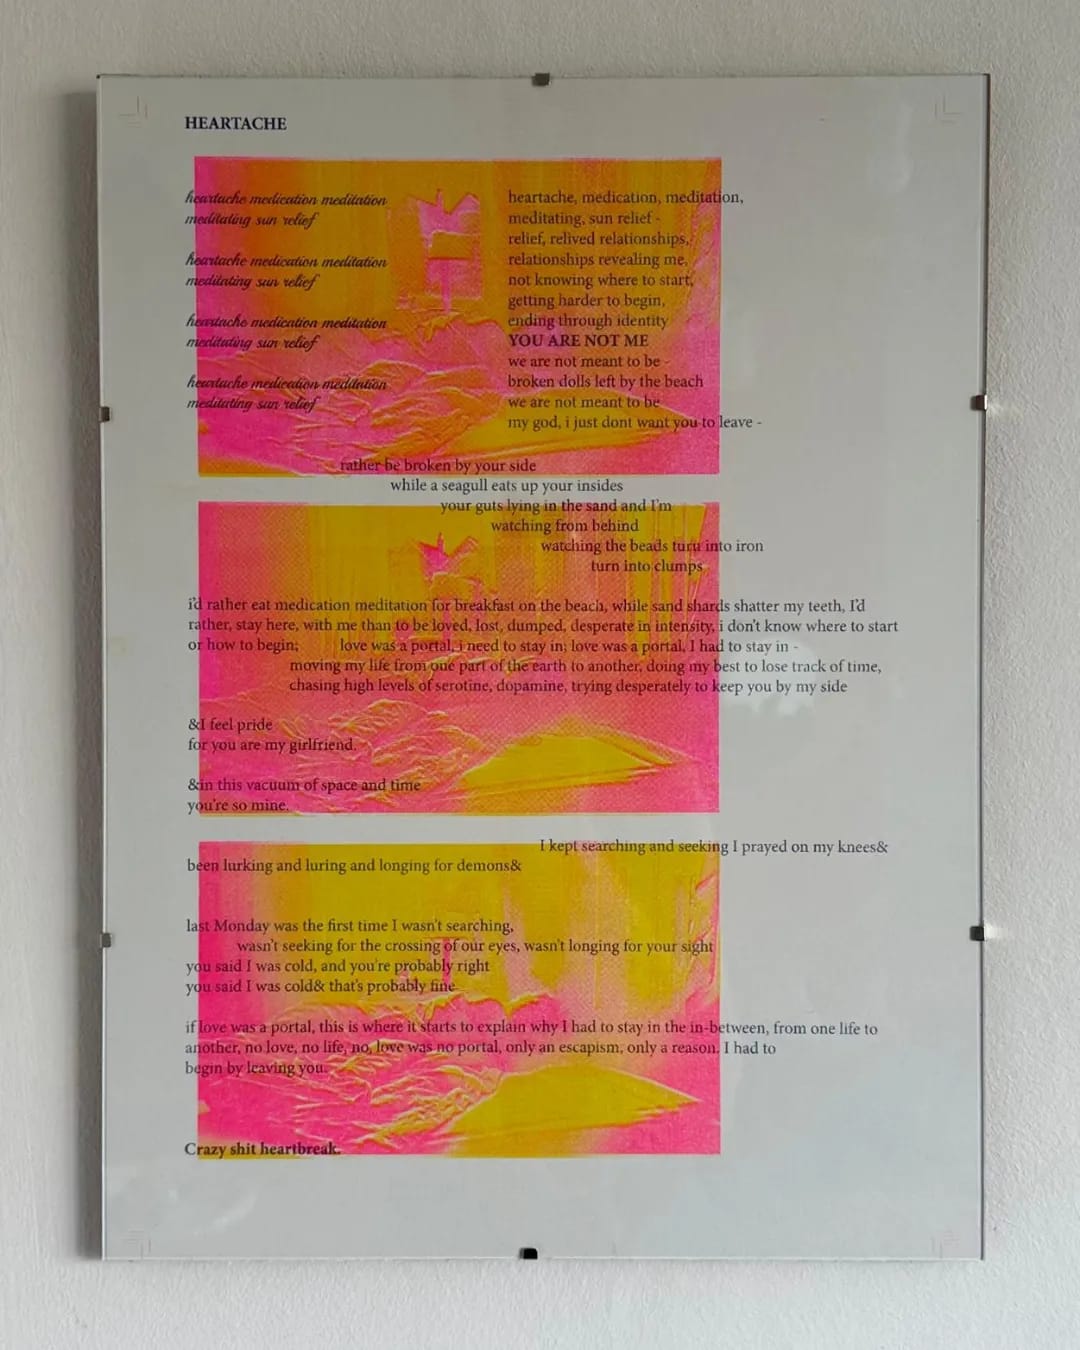 HEARTACHE
heartache medication meditation
meditating sun relief
heartache medication meditation
meditating sun relief
heartache medication meditation
meditating sun relief
heartache medication meditation
meditating sun relief
heartache, medication, meditation,
meditating, sun relief -
relief, relived relationships,
relationships revealing me,
not knowing where to start,
getting harder to begin,
ending through identity
YOU ARE NOT ME
we are not meant to be -
broken dolls left by the beach
we are not meant to be
my god, i just dont want you to leave -
rather be broken by your side
while a seagull eats up your insides
your guts lying in the sand and I'm
watching from behind
watching the beads turn into iron
turn into clumps
i'd rather eat medication meditation for breakfast on the beach, while sand shards shatter my teeth, I'd
rather, stay here, with me than to be loved, lost, dumped, desperate in intensity, i don't know where to start
or how to begin; love was a portal, i need to stay in; love was a portal, I had to stay in -
moving my life from one part of the earth to another, doing my best to lose track of time,
chasing high levels of serotine, dopamine, trying desperately to keep you by my side
&I feel pride
for you are my girlfriend.
&in this vacuum of space and time
you're so mine.
I kept searching and seeking I prayed on my knees&
been lurking and luring and longing for demons&
last Monday was the first time I wasn't searching,
wasn't seeking for the crossing of our eyes, wasn't longing for your sight
you said I was cold, and you're probably right
you said I was cold& that's probably fine
if love was a portal, this is where it starts to explain why I had to stay in the in-between, from one life to
another, no love, no life, no, love was no portal, only an escapism, only a reason. I had to
begin by leaving you.
Crazy shit heartbreak.